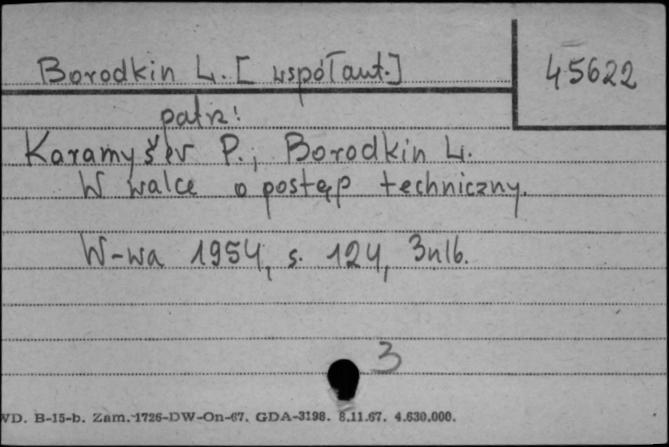 Borodkin L. [współaut.]
45622
patrz:
Karamyšev P., Borodkin L.
W walce o postęp techniczny.
W-wa 1954, s. 124, 3nlb.
3
WD. B-15-b. Zam. 1726-DW-On-67. GDA-3198. 8.11.67. 4.630.000.